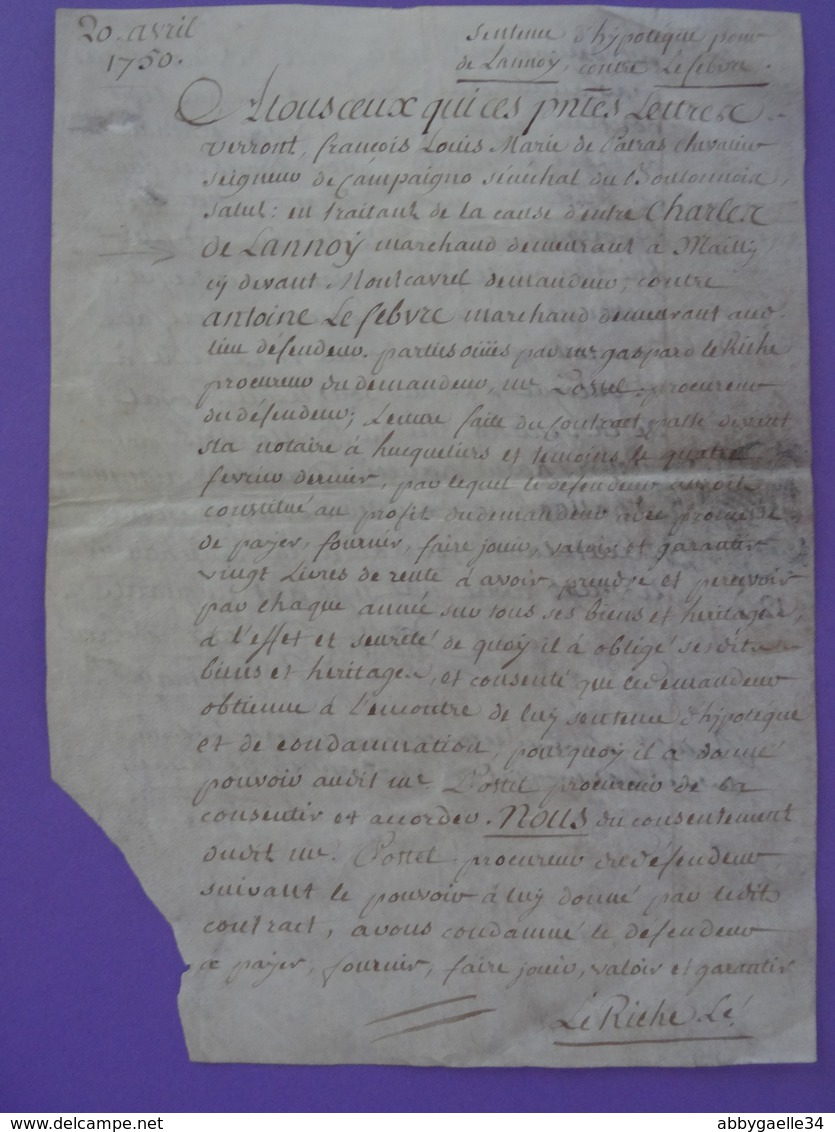 20. avril
1750.
sentence d'hypoteque pour
de Lannoy, contre Le febvre.
A tous ceux qui ces pntes Lettres
verront, françois Louis Marie de Patras chevalier
seigneur de Campaigno sénéchal du Boulonnois,
salut: en traitant de la cause d'entre Charles
de Lannoÿ marchand demeurant à Mailly
cy devant Montcavrel demandeur, contre
antoine Le febvre marchand demeurant aud.
lieu défendeur. parties oüies par me gaspard le Riche
procureur du demandeur, me Postel procureur
du défendeur; Lecture faite du Contract passé devant
sta notaire à hucqueliers et temoins le quatre
fevrier dernier, par lequel le défendeur auroit
constitué au profit du demandeur avec promesse
de payer, fournir, faire jouir, valoir et garantir
vingt Livres de rente à avoir prendre et percevoir
par chaque année sur tous ses biens et heritages,
à l'effet et seureté de quoÿ il à obligé sesdits
biens et heritages, et consenté que le demandeur
obtienne à l'encontre de luy sentence d'hypoteque
et de condamnation, pourquoÿ il à donné
pouvoir audit me. Postel procureur de la
consentir et accorder. Nous du consentement
dudit me. Postel procureur de défendeur
suivant le pouvoir à luy donné par ledit
contract, avons condamné le défendeur
à payer, fournir, faire jouir, valoir et garantir
Le Riche Lé
www.delcampe.net
abbygaelle34